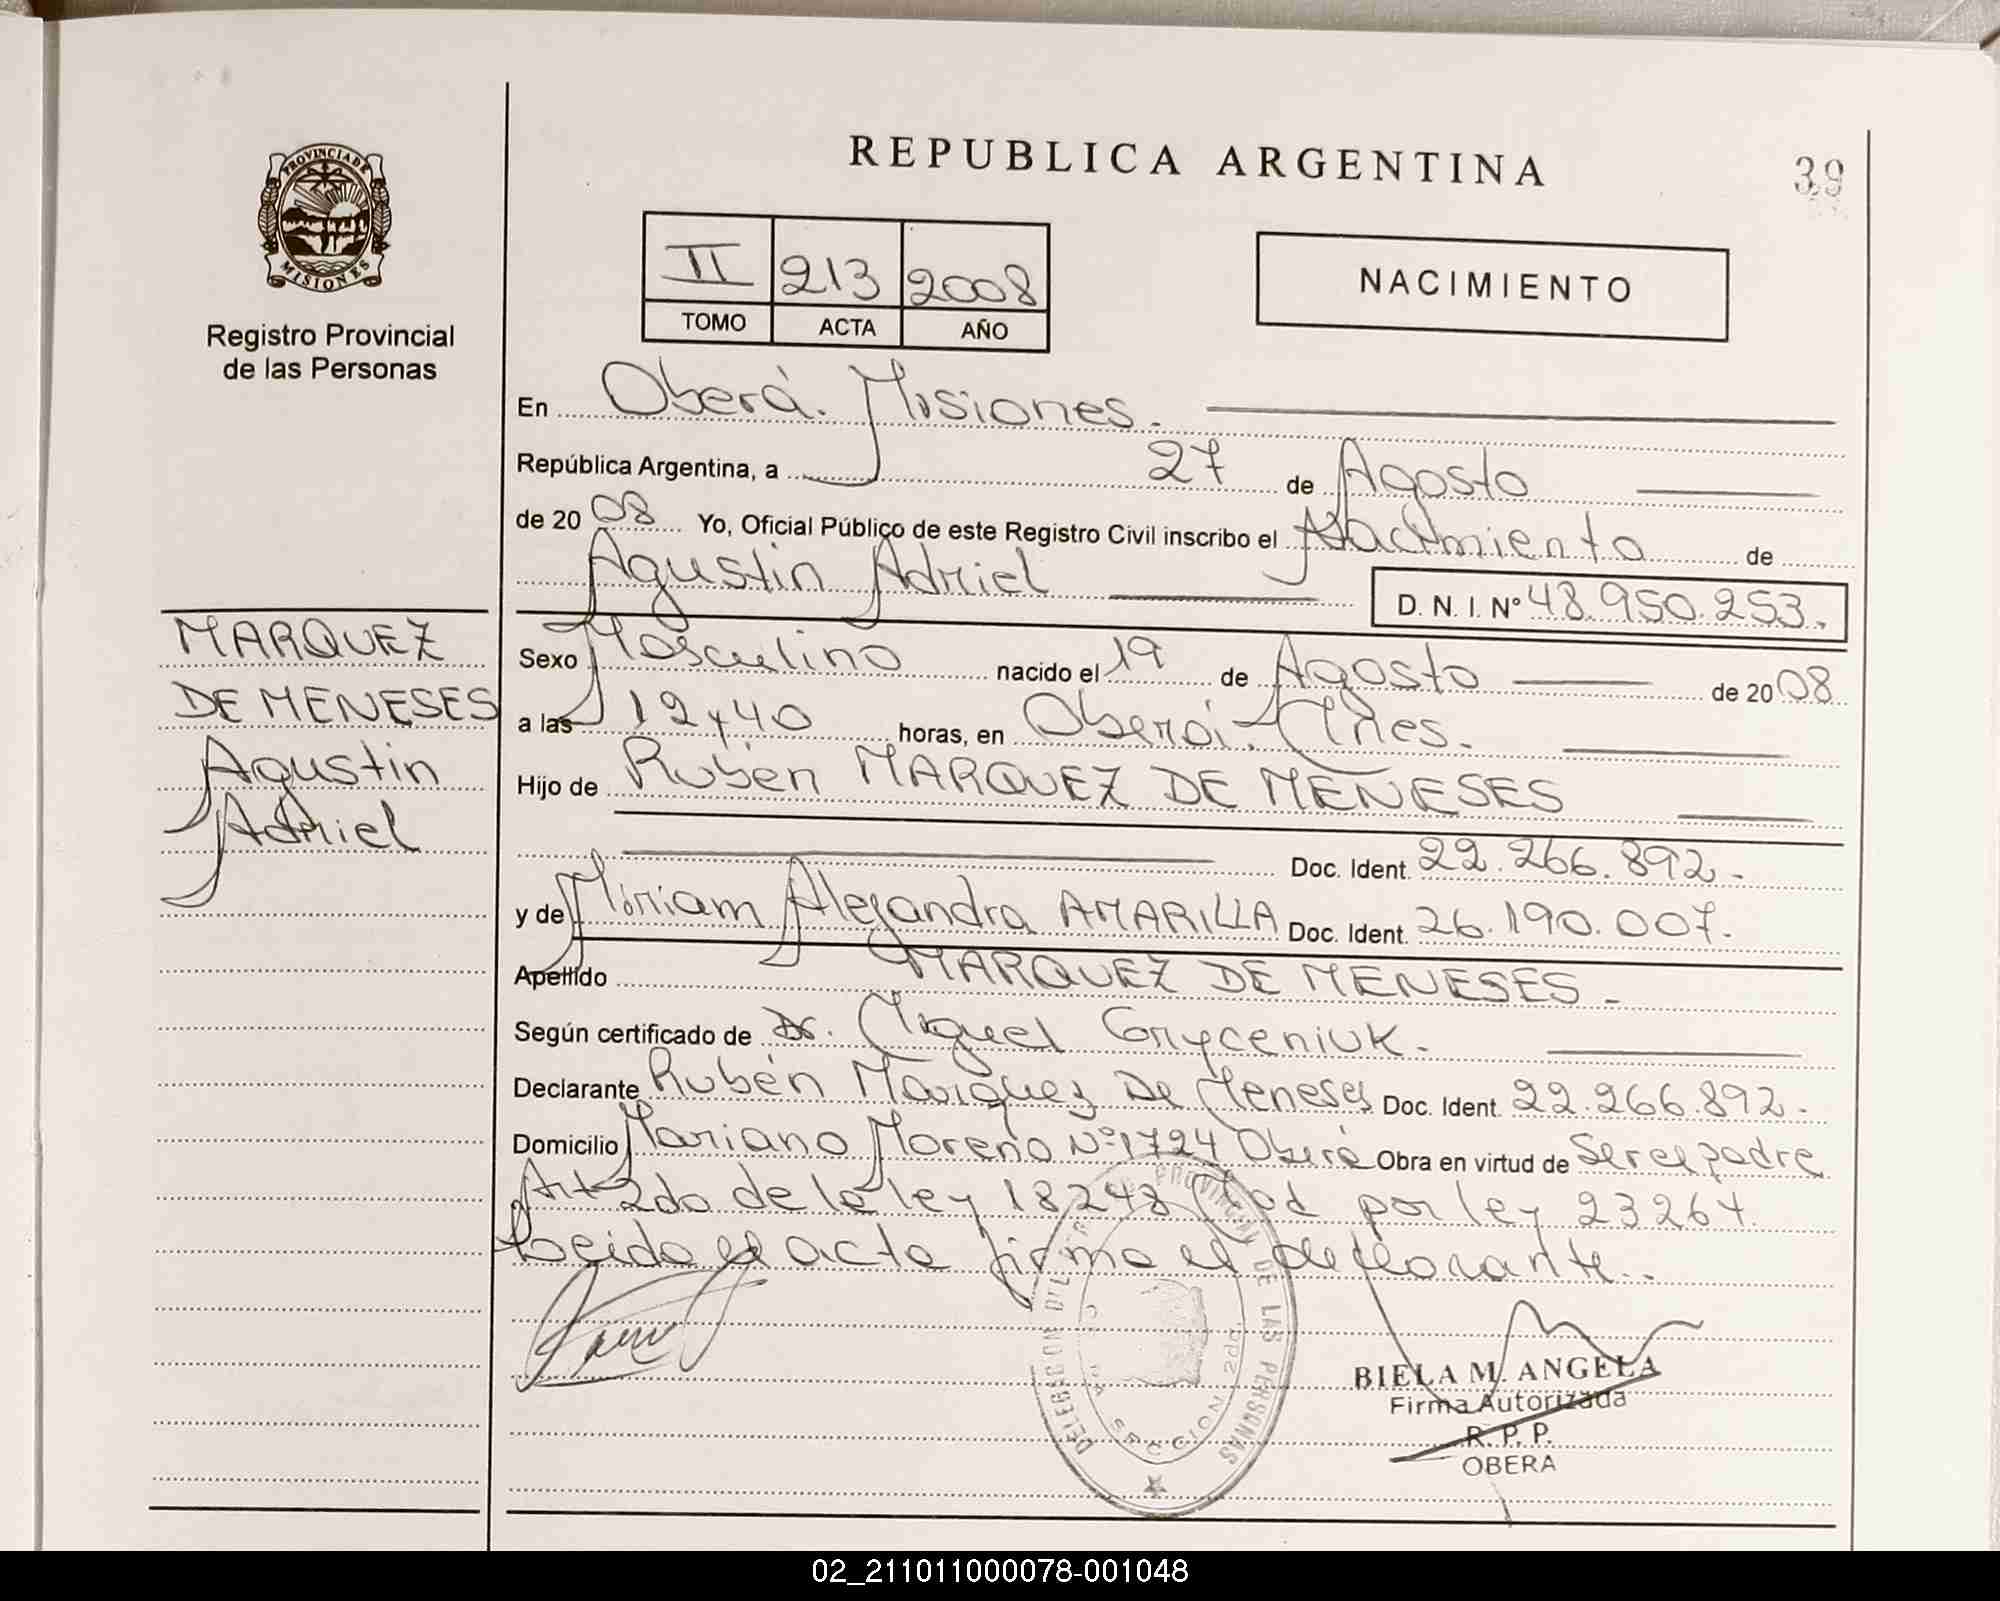 REPUBLICA ARGENTINA
39
PROVINCIA DE
MISIONES
Registro Provincial
de las Personas
II 213 2008
TOMO ACTA AÑO
NACIMIENTO
En Oberá. Misiones.
República Argentina, a 27 de Agosto
de 2008 Yo, Oficial Público de este Registro Civil inscribo el Nacimiento de
Agustin Adriel
D. N. I. Nº 48.950.253.
MARQUEZ
DE MENESES
Agustin
Adriel
Sexo Masculino nacido el 19 de Agosto de 2008
a las 12 y 40 horas, en Oberá. Mnes.
Hijo de Rubén MARQUEZ DE MENESES
Doc. Ident. 22.266.892.
y de Miriam Alejandra AMARILLA Doc. Ident. 26.190.007.
Apellido MARQUEZ DE MENESES.
Según certificado de Dr. Miguel Gryceniuk.
Declarante Rubén Marquez De Meneses Doc. Ident. 22.266.892.
Domicilio Mariano Moreno Nº 1724 Oberá Obra en virtud de Ser el padre
Art 2do de la ley 18248 Mod por ley 23264.
Leido el acta firma el declarante.
PROVINCIAL DE LAS PERSONAS
BIELA M. ANGELA
Firma Autorizada
R. P. P.
OBERA
02_211011000078-001048